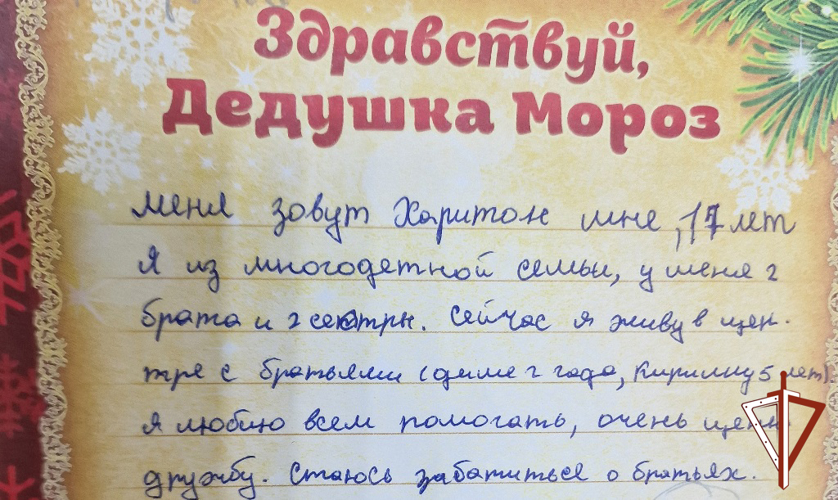 Здравствуй,
Дедушка Мороз
Меня зовут Харитон мне, 17 лет
Я из многодетной семьи, у меня 2
брата и 2 сестры. Сейчас я живу в цен-
тре с братьями (диме 2 года, Кириллу 5 лет).
Я люблю всем помогать, очень ценю
дружбу. Стаюсь забатиться о братьях.